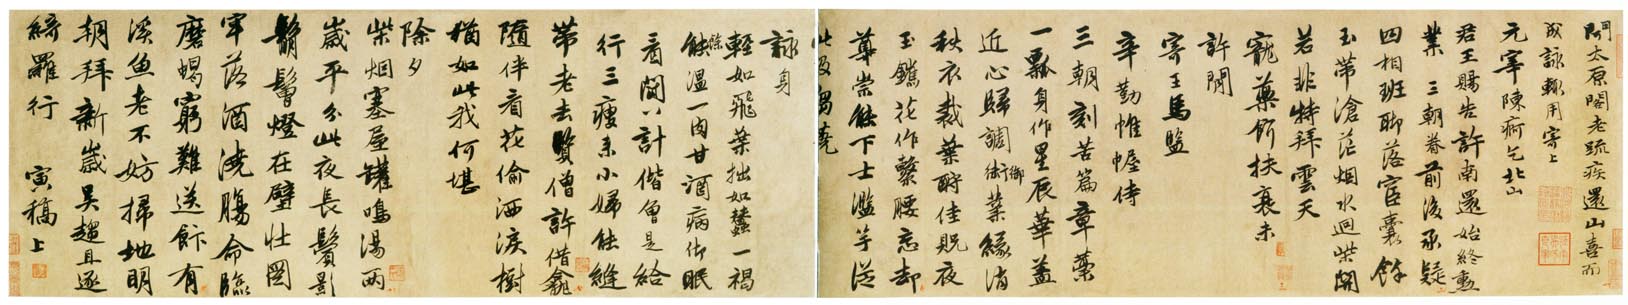 聞太原閣老疏疾還山喜而
成詠輒用寄上
元宰陳痾乞北山
君王賜告許南還始終勳
業三朝眷前後丞疑
四相班聊落宦囊餘
玉帶滄茫烟水迥柴關
若非特拜雲天
寵藥餌扶衰未
許閒
寄王馬監
辛勤帷幄侍
三朝刻苦篇章藁
一瓢身作星辰華蓋
近心歸調御葉緣消
秋衣裁葉酧佳貺夜
玉鑴花作繫腰忘却
尊崇能下士濫竽從
此
詠身
輕如飛葉拙如蠶一褐
餘溫一肉甘酒病仰眠
看閣計偕曾是給
行三瘦來小婦能縫
帶老去賢僧許借龕
隨伴看花偷洒淚樹
猶如此我何堪
除夕
柴烟塞屋罐鳴湯兩
歲平分此夜長鬢影
鬅鬙燈在壁壯圖
牢落酒澆腸命臨
磨蝎窮難送飰有
溪魚老不妨掃地明
朝拜新歲吳趨且逐
綺羅行 寅稿上